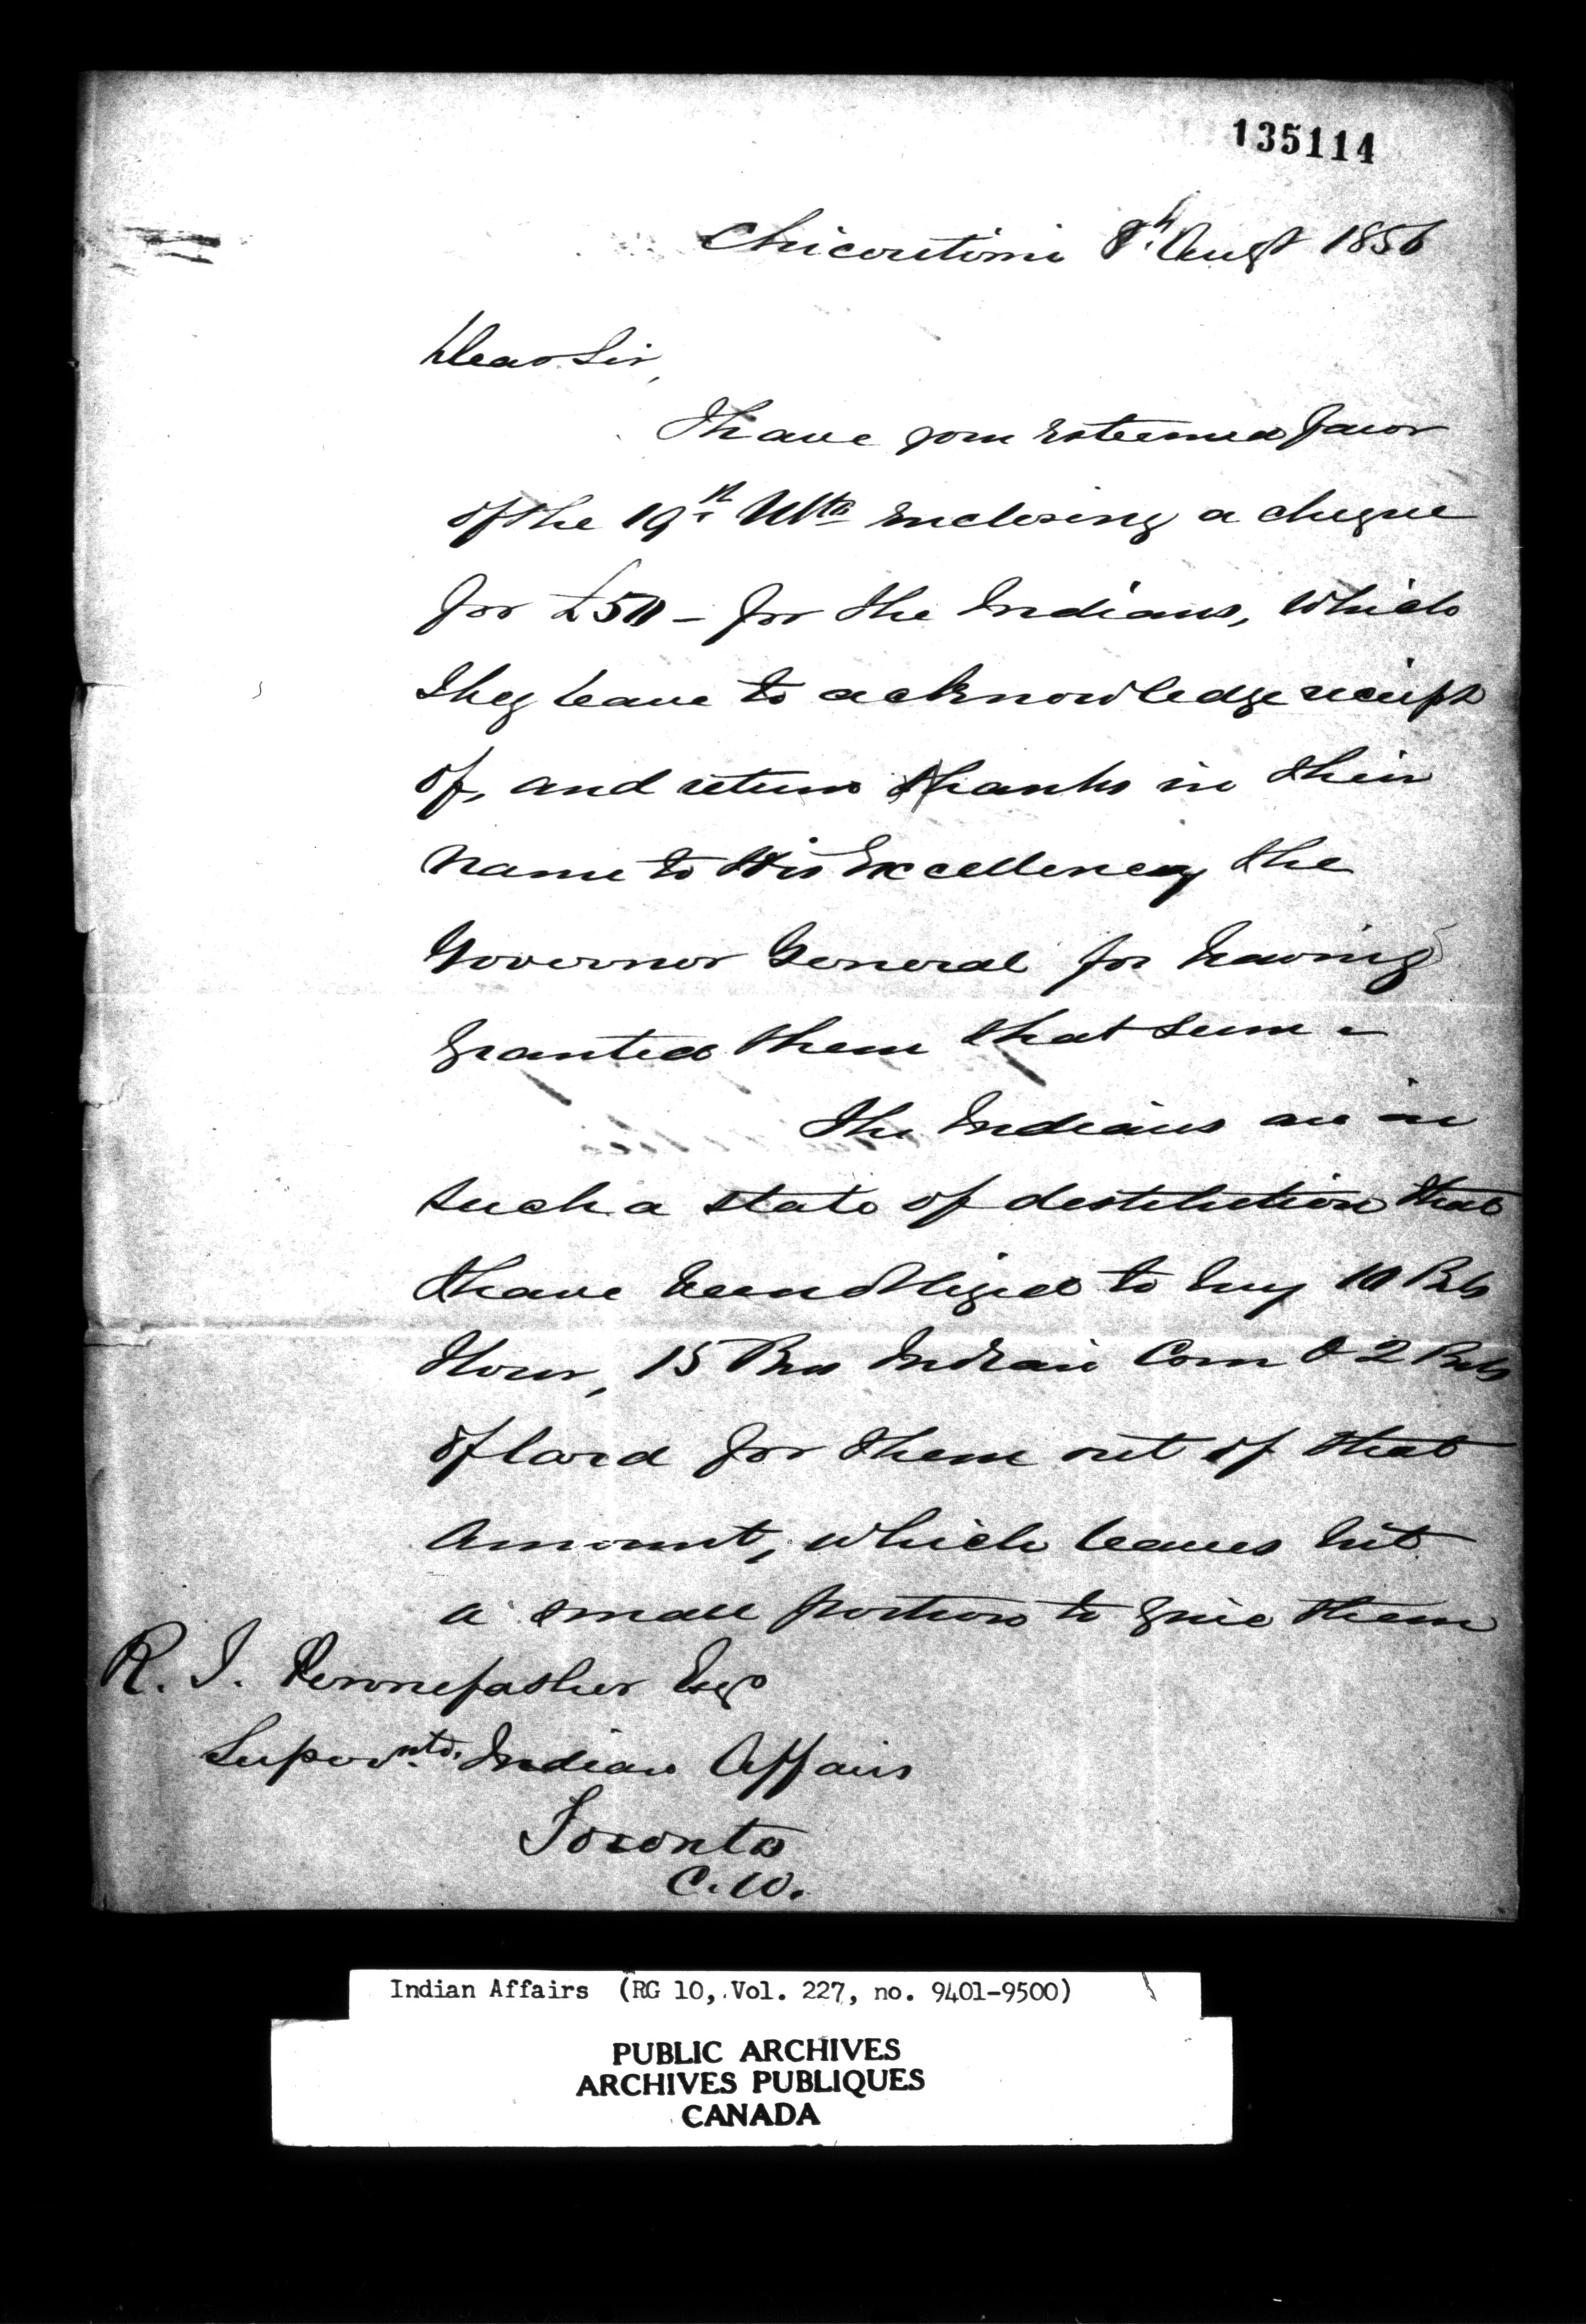 135114
Chicoutimi 8th Augt 1856
Dear Sir,
I have your esteemed favor
of the 19th Ulto enclosing a cheque
for £50 - for the Indians, which
I beg leave to acknowledge receipt
of, and return thanks in their
name to His Excellency the
Governor General for having
granted them that sum -
The Indians are in
such a state of destitution that
I have been obliged to buy 10 Bls
Flour, 15 Bus Indian Corn & 2 Bls
of lard for them out of that
amount, which leaves but
a small portion to give them
R. T. Pennefather Esqr
Superintd. Indian Affairs
Toronto
C.W.
Indian Affairs (RG 10, Vol. 227, no. 9401-9500)
PUBLIC ARCHIVES
ARCHIVES PUBLIQUES
CANADA